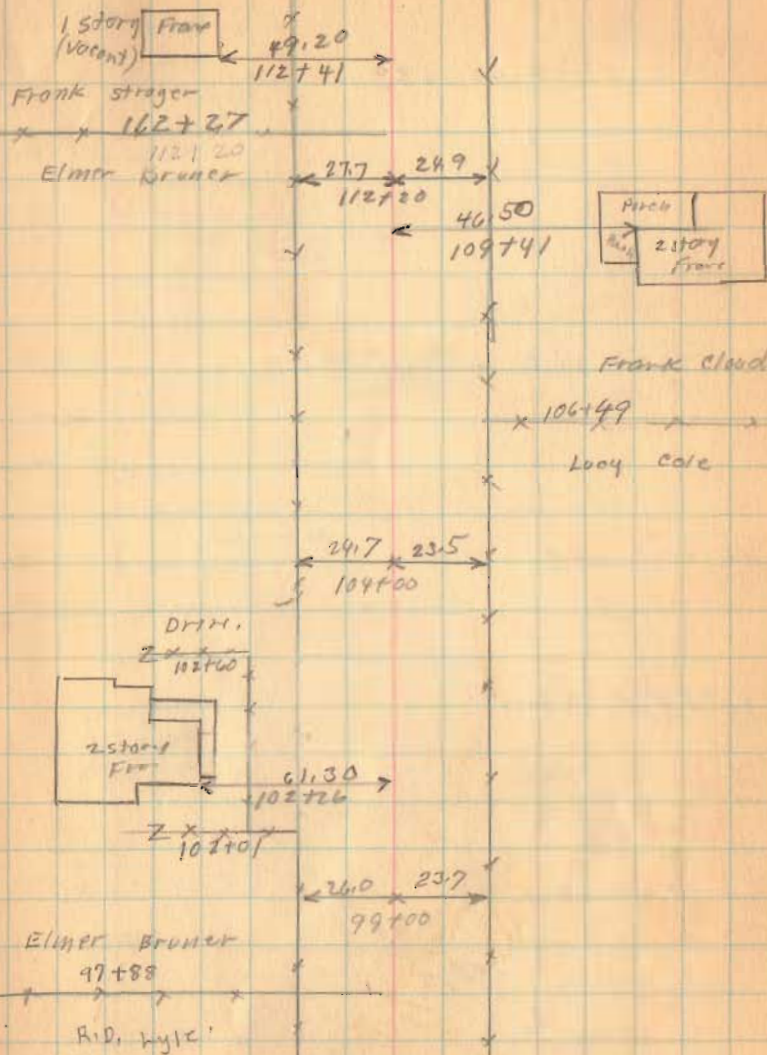 1 story
(Vacant)
Frame
49.20
112+41
Frank Strager
112+27
112+20
Elmer Bruner
27.7 24.9
112+20
46.50
109+41
Porch
2 story
Frame
Frank Cloud
106+49
Lucy Cole
24.7 23.5
104+00
Driv.
102+60
2 story
Fra
61.30
102+26
102+01
26.0 23.7
99+00
Elmer Bruner
97+88
R.D. Lyle